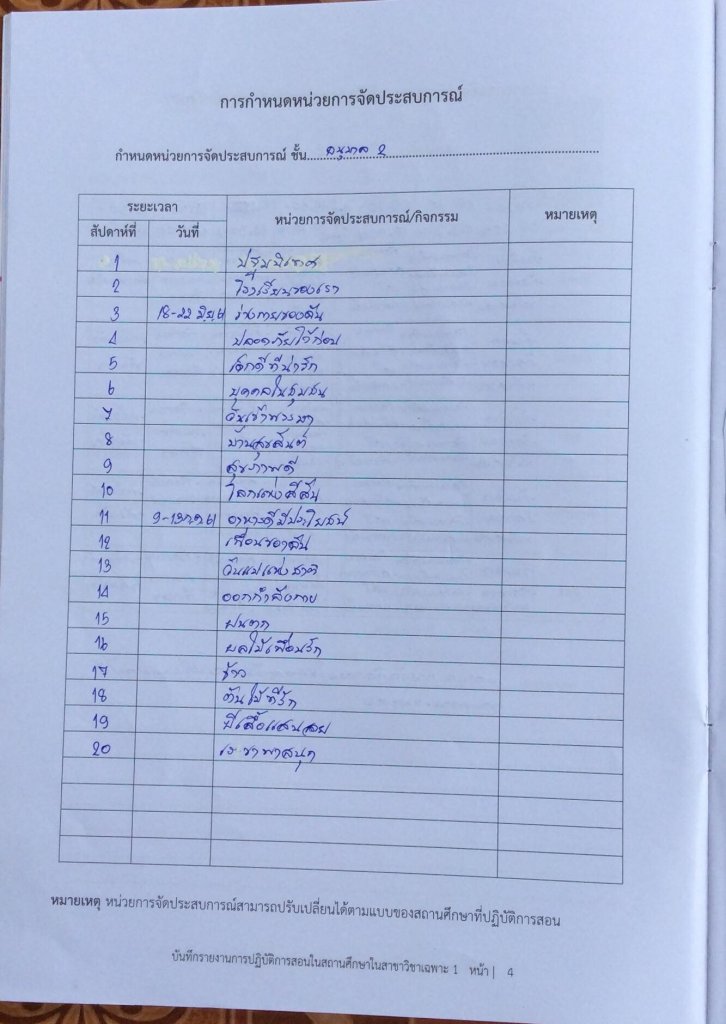 การกำหนดหน่วยการจัดประสบการณ์
กำหนดหน่วยการจัดประสบการณ์ ชั้น อนุบาล 2
ระยะเวลา หน่วยการจัดประสบการณ์/กิจกรรม หมายเหตุ
สัปดาห์ที่ วันที่
1 ปฐมนิเทศ
2 โรงเรียนของเรา
3 18-22 มิ.ย. 61 ร่างกายของฉัน
4 ปลอดภัยไว้ก่อน
5 เด็กดีที่น่ารัก
6 บุคคลในชุมชน
7 วันเข้าพรรษา
8 บ้านสุขสันต์
9 สุขภาพดี
10 โลกแห่งสีสัน
11 9-13 ก.ค. 61 อาหารดีมีประโยชน์
12 เพื่อนของฉัน
13 วันแม่แห่งชาติ
14 ออกกำลังกาย
15 ฝนตก
16 ผลไม้เพื่อนรัก
17 ข้าว
18 ต้นไม้ที่รัก
19 ผีเสื้อแสนสวย
20 เระชาพาสนุก
หมายเหตุ หน่วยการจัดประสบการณ์สามารถปรับเปลี่ยนได้ตามแบบของสถานศึกษาที่ปฏิบัติการสอน
บันทึกรายงานการปฏิบัติการสอนในสถานศึกษาในสาขาวิชาเฉพาะ 1 หน้า | 4